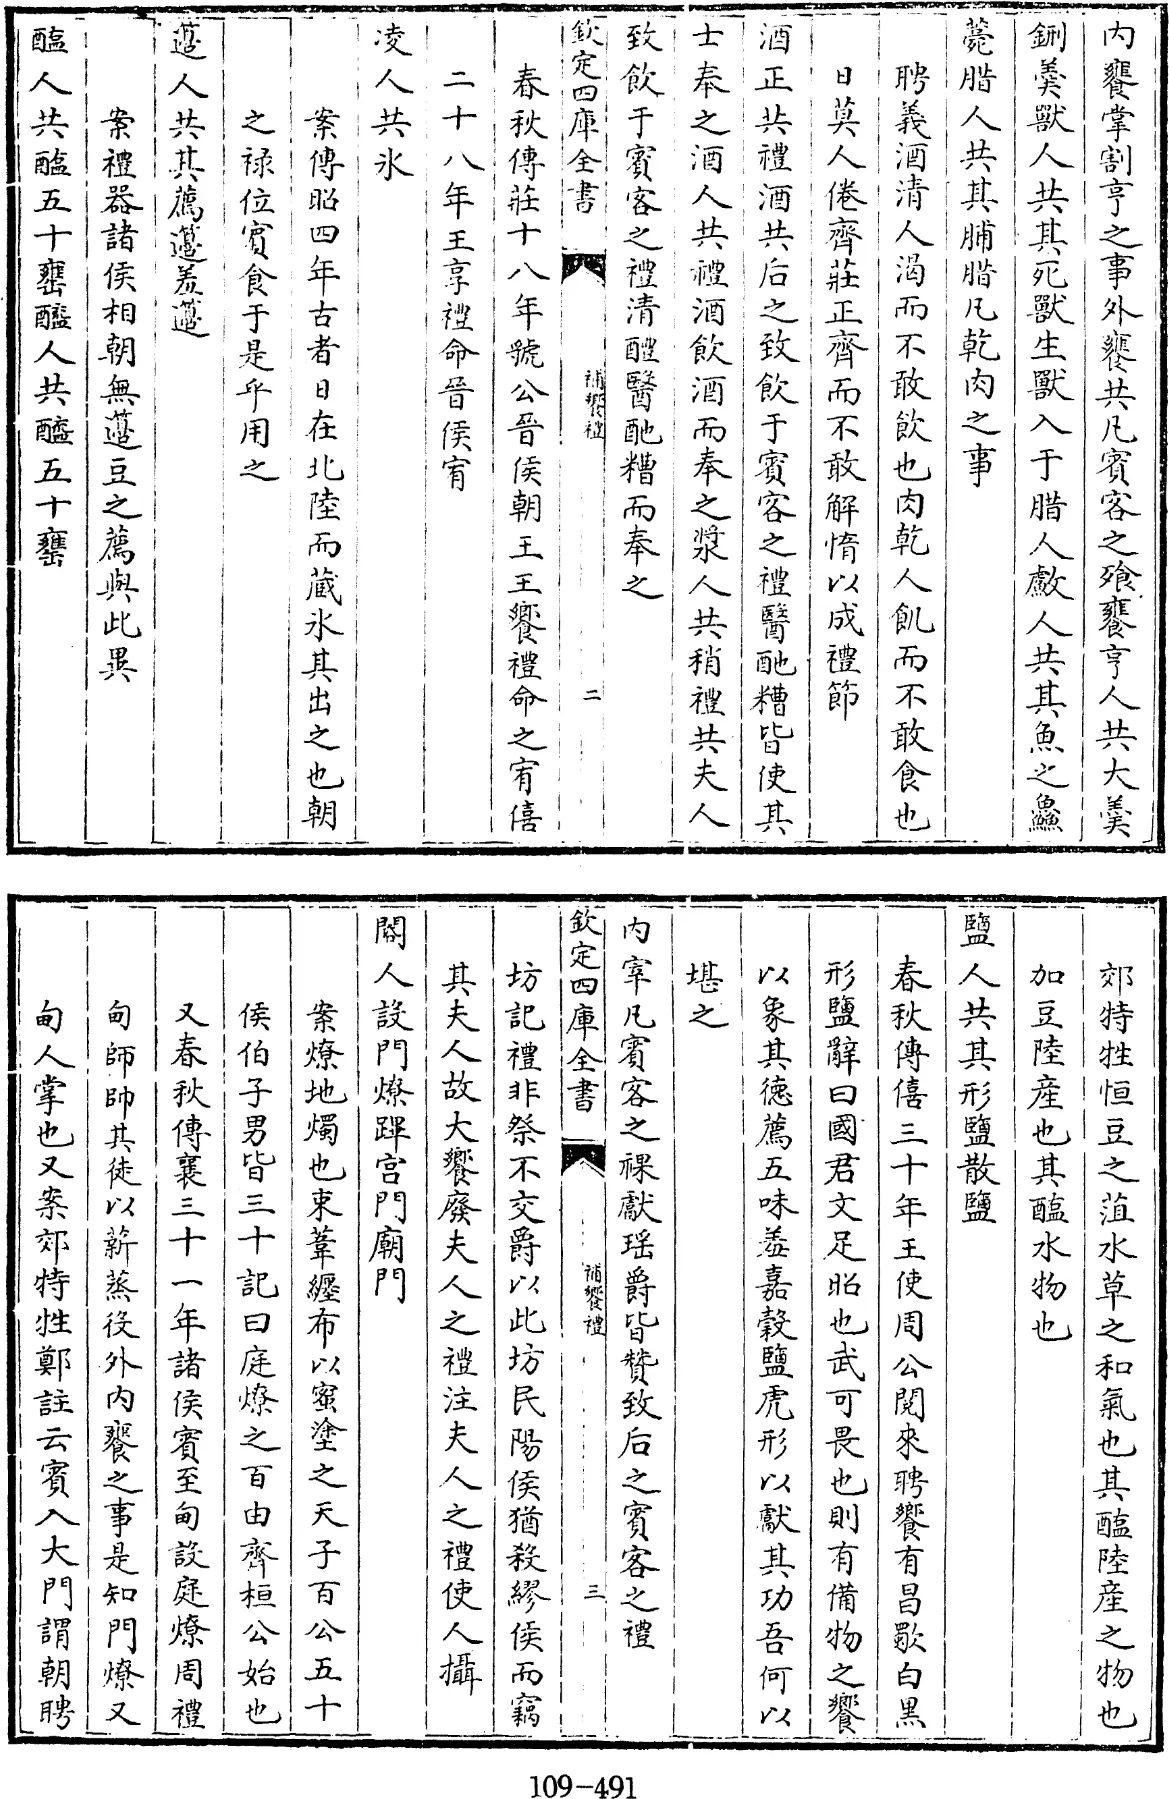 内饔掌割亨之事外饔共凡賓客之飱饔亨人共大羮
鉶羮獸人共其死獸生獸入于腊人䱷人共其魚之鱻
薧腊人共其脯腊凡乾肉之事
聘義酒清人渴而不敢飲也肉乾人飢而不敢食也
日莫人倦齊莊正齊而不敢解惰以成禮節
酒正共禮酒共后之致飲于賓客之禮醫酏糟皆使其
士奉之酒人共禮酒飲酒而奉之漿人共稍禮共夫人
致飲于賓客之禮清醴醫酏糟而奉之
欽定四庫全書
補饗禮
二
春秋傳莊十八年虢公晉侯朝王王饗禮命之宥僖
二十八年王享禮命晉侯宥
凌人共氷
案傳昭四年古者日在北陸而藏氷其出之也朝
之禄位賓食于是乎用之
籩人共其薦籩羞籩
案禮器諸侯相朝無籩豆之薦與此異
醢人共醢五十罋醯人共醯五十罋
郊特牲恒豆之菹水草之和氣也其醢陸産之物也
加豆陸産也其醢水物也
鹽人共其形鹽散鹽
春秋傳僖三十年王使周公閱來聘饗有昌歜白黑
形鹽辭曰國君文足昭也武可畏也則有備物之饗
以象其德薦五味羞嘉穀鹽虎形以獻其功吾何以
堪之
内宰凡賓客之祼獻瑶爵皆贊致后之賓客之禮
欽定四庫全書
補饗禮
三
坊記禮非祭不交爵以此坊民陽侯猶殺繆侯而竊
其夫人故大饗廢夫人之禮注夫人之禮使人攝
閽人設門燎蹕宫門廟門
案燎地燭也束葦纒布以蜜塗之天子百公五十
侯伯子男皆三十記曰庭燎之百由齊桓公始也
又春秋傳襄三十一年諸侯賓至甸設庭燎周禮
甸師帥其徒以薪蒸役外内饔之事是知門燎又
甸人掌也又案郊特牲鄭註云賓入大門謂朝聘
109-491